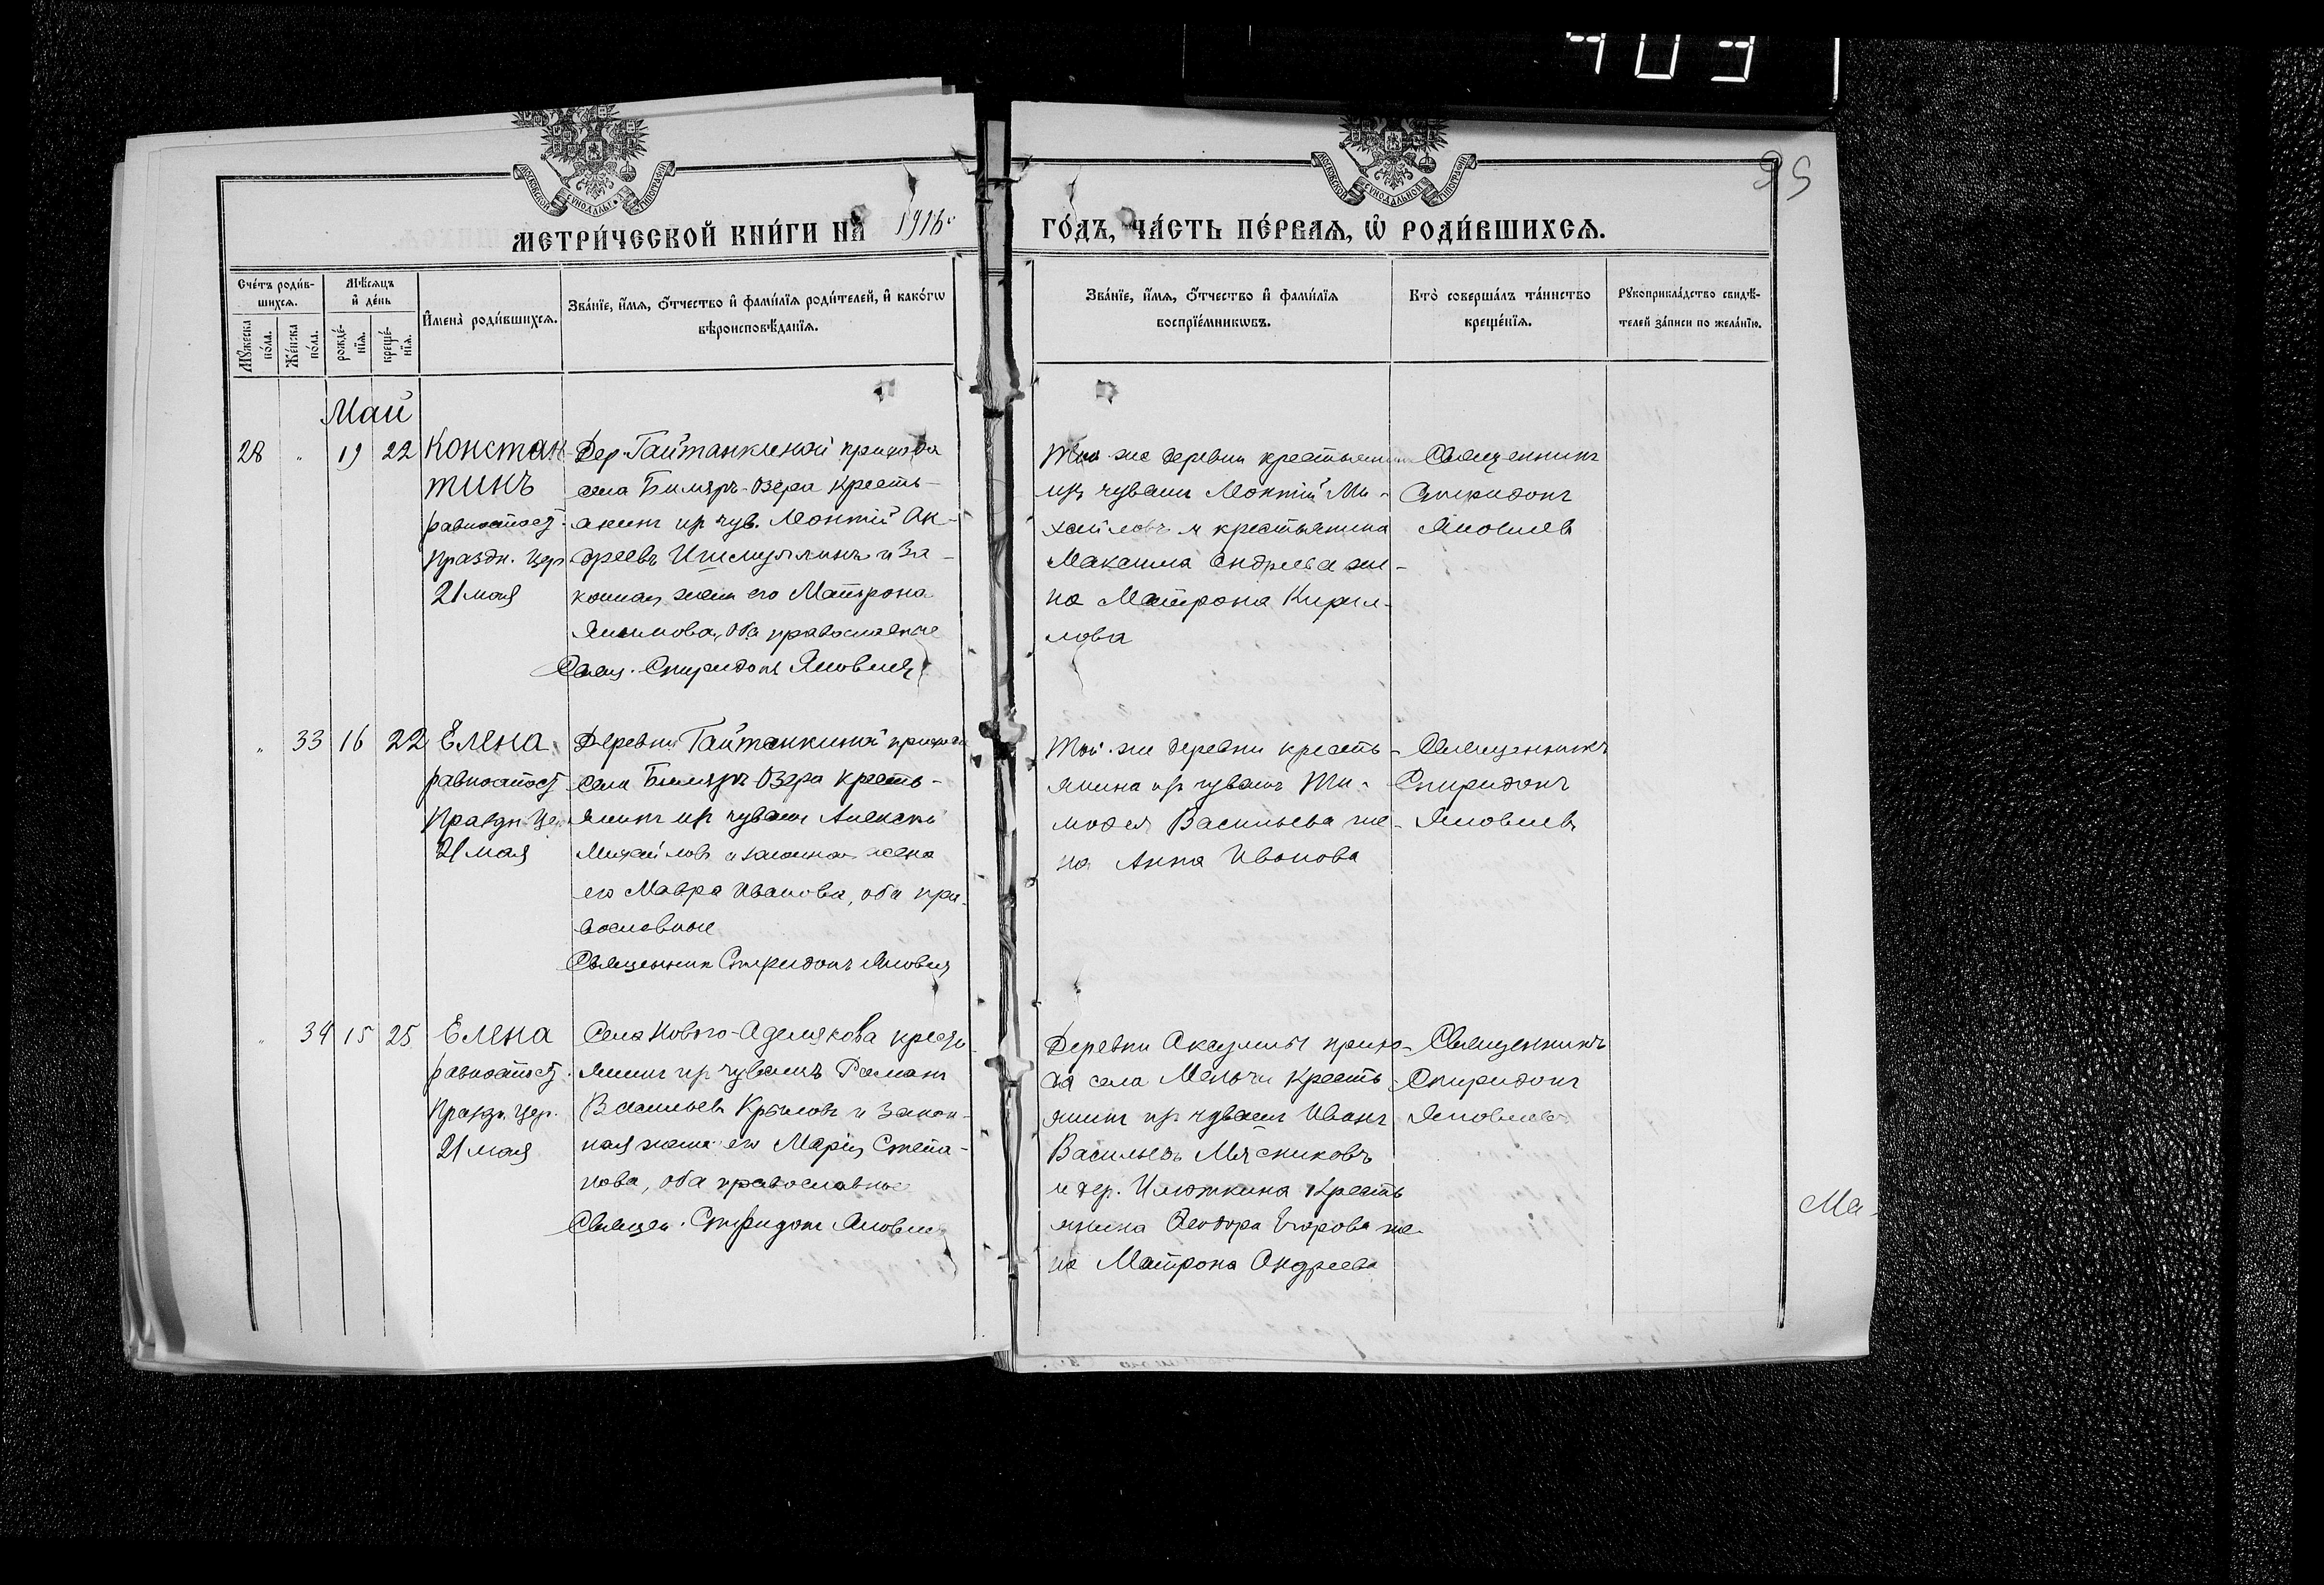 403
95
МОСКОВСКОЙ СУНОДАЛЬНОЙ ТИПОГРАФІИ
МОСКОВСКОЙ СУНОДАЛЬНОЙ ТИПОГРАФІИ
МЕТРИ́ЧЕСКОЙ КНИ́ГИ НА 1916 ГО́ДЪ, ЧА́СТЬ ПЕ́РВАѦ, Ѡ҆ РОДИ́ВШИХСѦ.
Сче́тъ роди́в-
шихсѧ.
Мꙋ́жеска
по́ла.
Же́нска
по́ла.
Мѣ́сѧцъ
и҆ де́нь
рожде́-
нїѧ.
креще́-
нїѧ.
И҆мена̀ роди́вшихсѧ.
Зва́нїе, и҆́мѧ, ѻ҆́тчество и҆ фами́лїѧ роди́телей, и҆ како́гѡ
вѣроисповѣ́данїѧ.
Зва́нїе, и҆́мѧ, ѻ҆́тчество и҆ фами́лїѧ
воспрїе́мникѡвъ.
Кто̀ соверша́лъ та́инство
креще́нїѧ.
Рꙋкоприкла́дство свидѣ́-
телей за́писи по жела́нїю.
Май
28 " 19 22
Констан-
тинъ
равноапост.
праздн. цер
21 мая
Дер. Гайтанкиной прихода
села Бимяръ-Озера кресть-
янинъ из чув. Леонтій
и за-
конная жена его Матрона
оба православные
Свящ. Спиридонъ Яковлев
Той же деревни крестьянин
из чуваш Леонтій Ми-
хайловъ и крестьянина
Максима Андреева же-
на Матрона Кирил-
лова
Священникъ
Спиридонъ
Яковлев
" 33 16 22
Елена
равноапост
Праздн. це
21 мая
Деревни Гайтанкиной прихода
села Бимяръ-Озера кресть-
янинъ из чуваш Алексѣй
Михайловъ и законная жена
его Мавра Иванова, оба пра-
вославные
Священник Спиридонъ Яковлев
Той же деревни кресть-
янина из чуваш Ти-
мофея Васильева же-
на Анна Иванова
Священникъ
Спиридонъ
Яковлевъ
" 34 15 25
Елена
равноапост.
Праздн. цер.
21 мая
Села Нового-Аделякова кресть-
янинъ из чувашъ Романъ
Васильевъ Крыловъ и закон-
ная жена его Марія Степа-
нова, оба православные
Священ. Спиридонъ Яковлев
Деревни прихо-
да села кресть-
янинъ из чуваш Иванъ
Васильевъ Мясниковъ
и дер. Илюткина кресть
янина Ѳеодора Егорова же-
на Матрона Андреева
Священникъ
Спиридонъ
Яковлевъ
Ма-